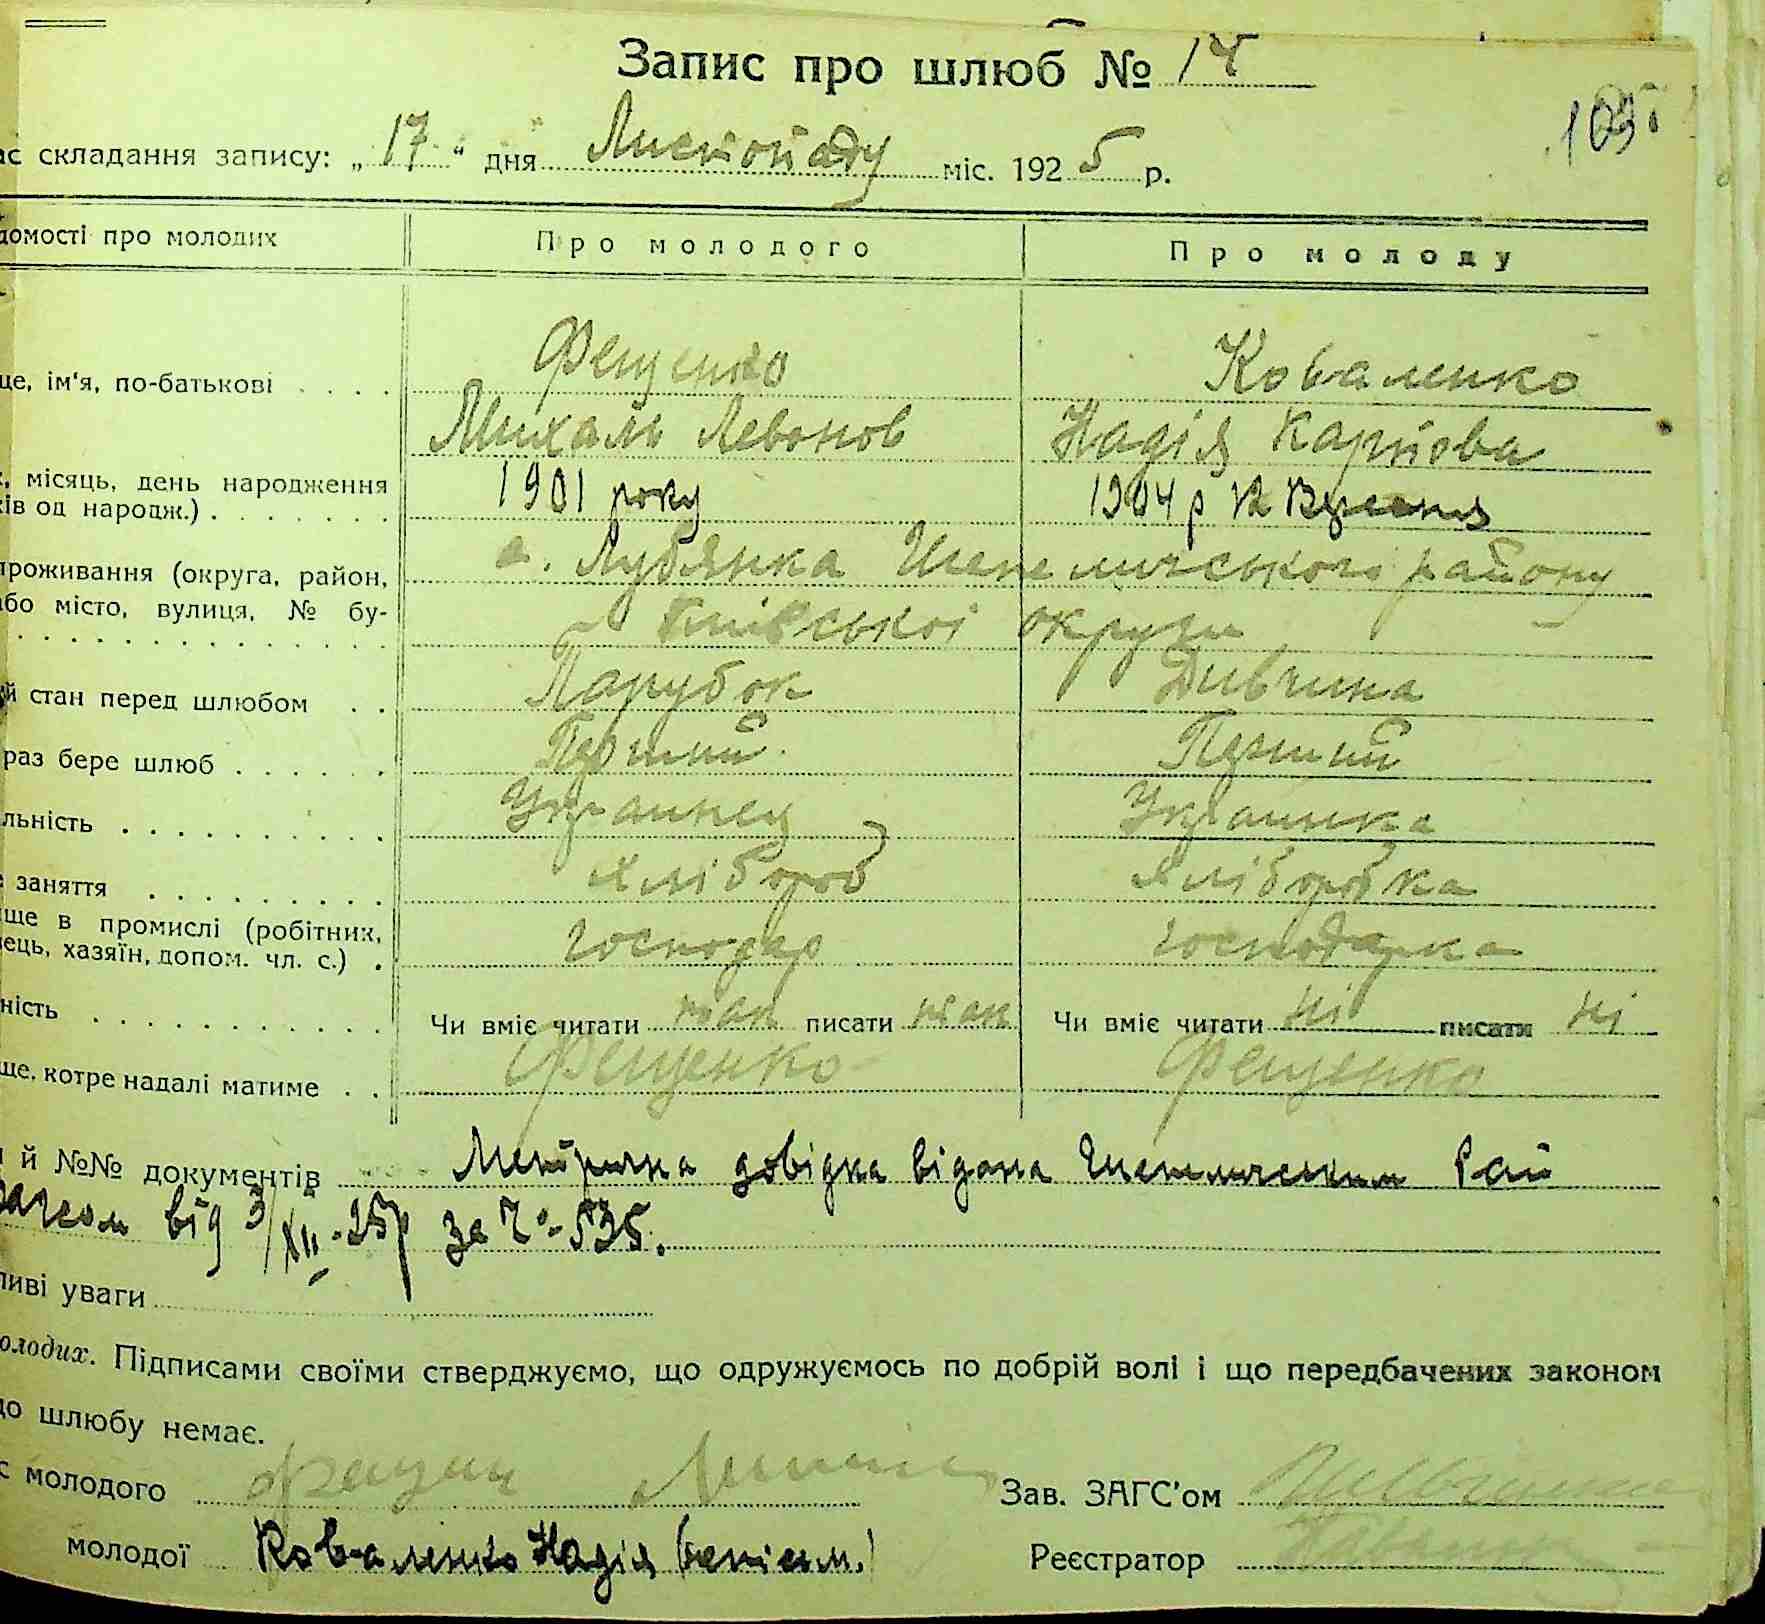 Запис про шлюб № 14
103
ас складання запису: „ 17 “ дня Листопаду міс. 1925 р.
домості про молодих Про молодого Про молоду
Фещенко Коваленко
ще, ім'я, по-батькові
Михаль Левонов Надія Карпова
місяць, день народження 1901 року 1904 р 12 Вересня
ків од народж.)
с. Лубянка Шепеличського району
проживання (округа, район,
або місто, вулиця, № бу-
Київської округи
й стан перед шлюбом Парубок Дивчина
раз бере шлюб Перший Перший
льність Украинец Украинка
заняття Хлібороб Хліборобка
ще в промислі (робітник, господар господарка
вець, хазяїн, допом. чл. с.)
ність Чи вміє читати так писати так Чи вміє читати ні писати ні
ще, котре надалі матиме Фещенко Фещенко
й №№ документів Метрична довідка відана Шепеличським Рай
загсом від 3/XII-25р за №-535.
ливі уваги
олодих. Підписами своїми стверджуємо, що одружуємось по добрій волі і що передбачених законом
до шлюбу немає.
с молодого Зав. ЗАГС'ом
молодої Коваленко Надія (неписьм.) Реєстратор